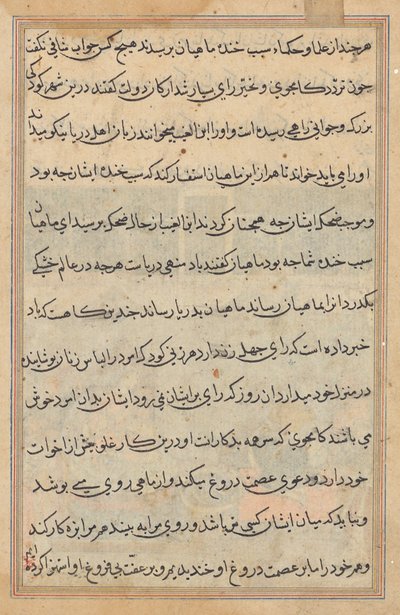 هر چند از علما و حکماء سبب خنده ماهیان پرسیدند هیچ کس جواب شافی نکفت
چون تردد کامجوی و تحیر رای بسیار شد ارکان دولت کفتند درین شهر کودکی
بزرک و جوانی راهبی رسیده است و او را ابن الغیب میخوانند زبان اهل دریا نیکو میداند
او را می باید خواند تا هم از این ماهیان استفسار کند که سبب خنده ایشان چه بود
و موجب ضحک ایشان چه همچنان کردند ابن الغیب از حال ضحک پرسید ای ماهیان
سبب خنده شما چه بود ماهیان کفتند باد منهی دریاست هرچه در عالم خشکی
بکذرد از ا بماهیان رساند ماهیان بدریا رساند چندین کاهست که باد
خبر داده است که رای چهل زن دارد هر زنی کودک امرد را لباس زنان پوشانیده
در منزل خود میدارد آن روز که رای بر ایشان نمی رود ایشان بدان امرد خوش
می باشند کامجوی که سرهمه بدکارانت او درین کار غلو بیش از اخوات
خود دارد و دعوی عصمت دروغ میکند و از ماهی روی می پوشد
و نباید که میان ایشان کسی نر باشد و روی مرا به بیند هم مرا بزه کار کند
و هم خود را ما بر عصمت دروغ او خندیدیم و بر عفت بی فروغ او استهزا کرده ایم